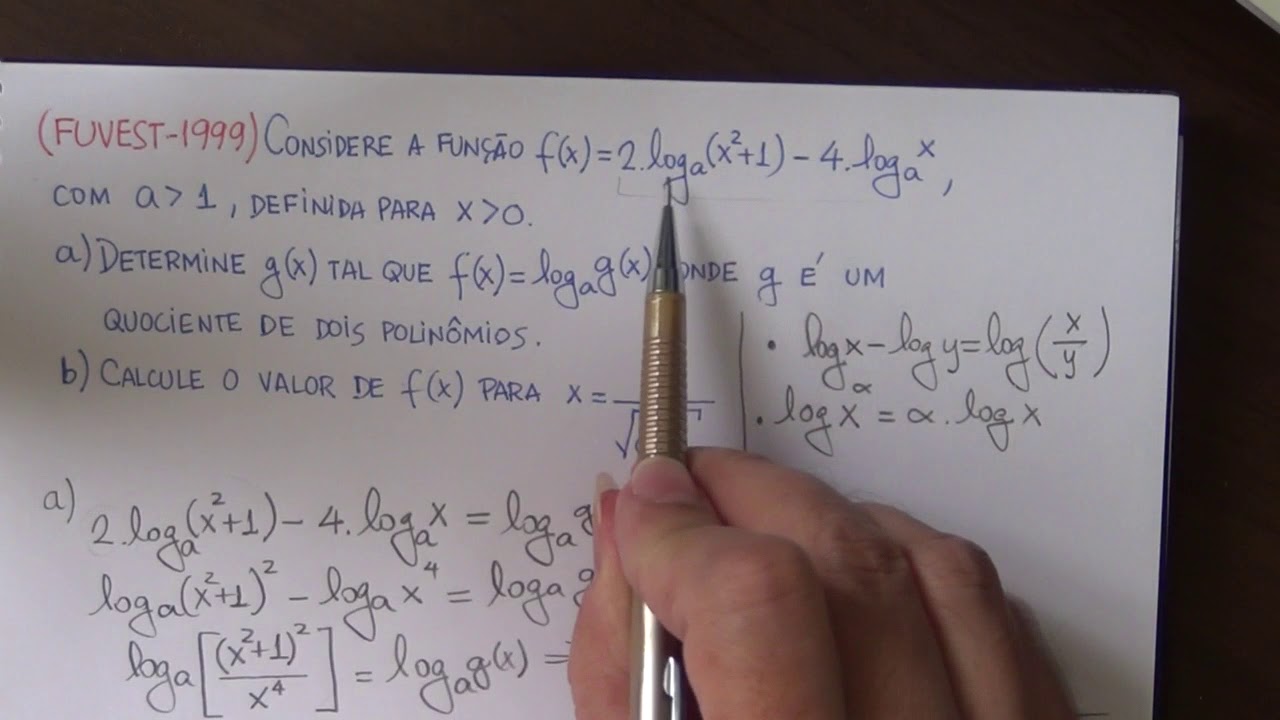 (FUVEST-1999) CONSIDERE A FUNÇÃO f(x)=2.logₐ(x²+1) - 4.logₐx,
COM a>1, DEFINIDA PARA x>0.
a) DETERMINE g(x) TAL QUE f(x)=logₐg(x) ONDE g É UM
QUOCIENTE DE DOIS POLINÔMIOS.
b) CALCULE O VALOR DE f(x) PARA x=
• log x - log y = log (x/y)
• log x^α = α . log x
a) 2.logₐ(x²+1) - 4.logₐx = logₐ g
logₐ(x²+1)² - logₐ x⁴ = logₐ g
logₐ[(x²+1)²/x⁴] = logₐg(x) =